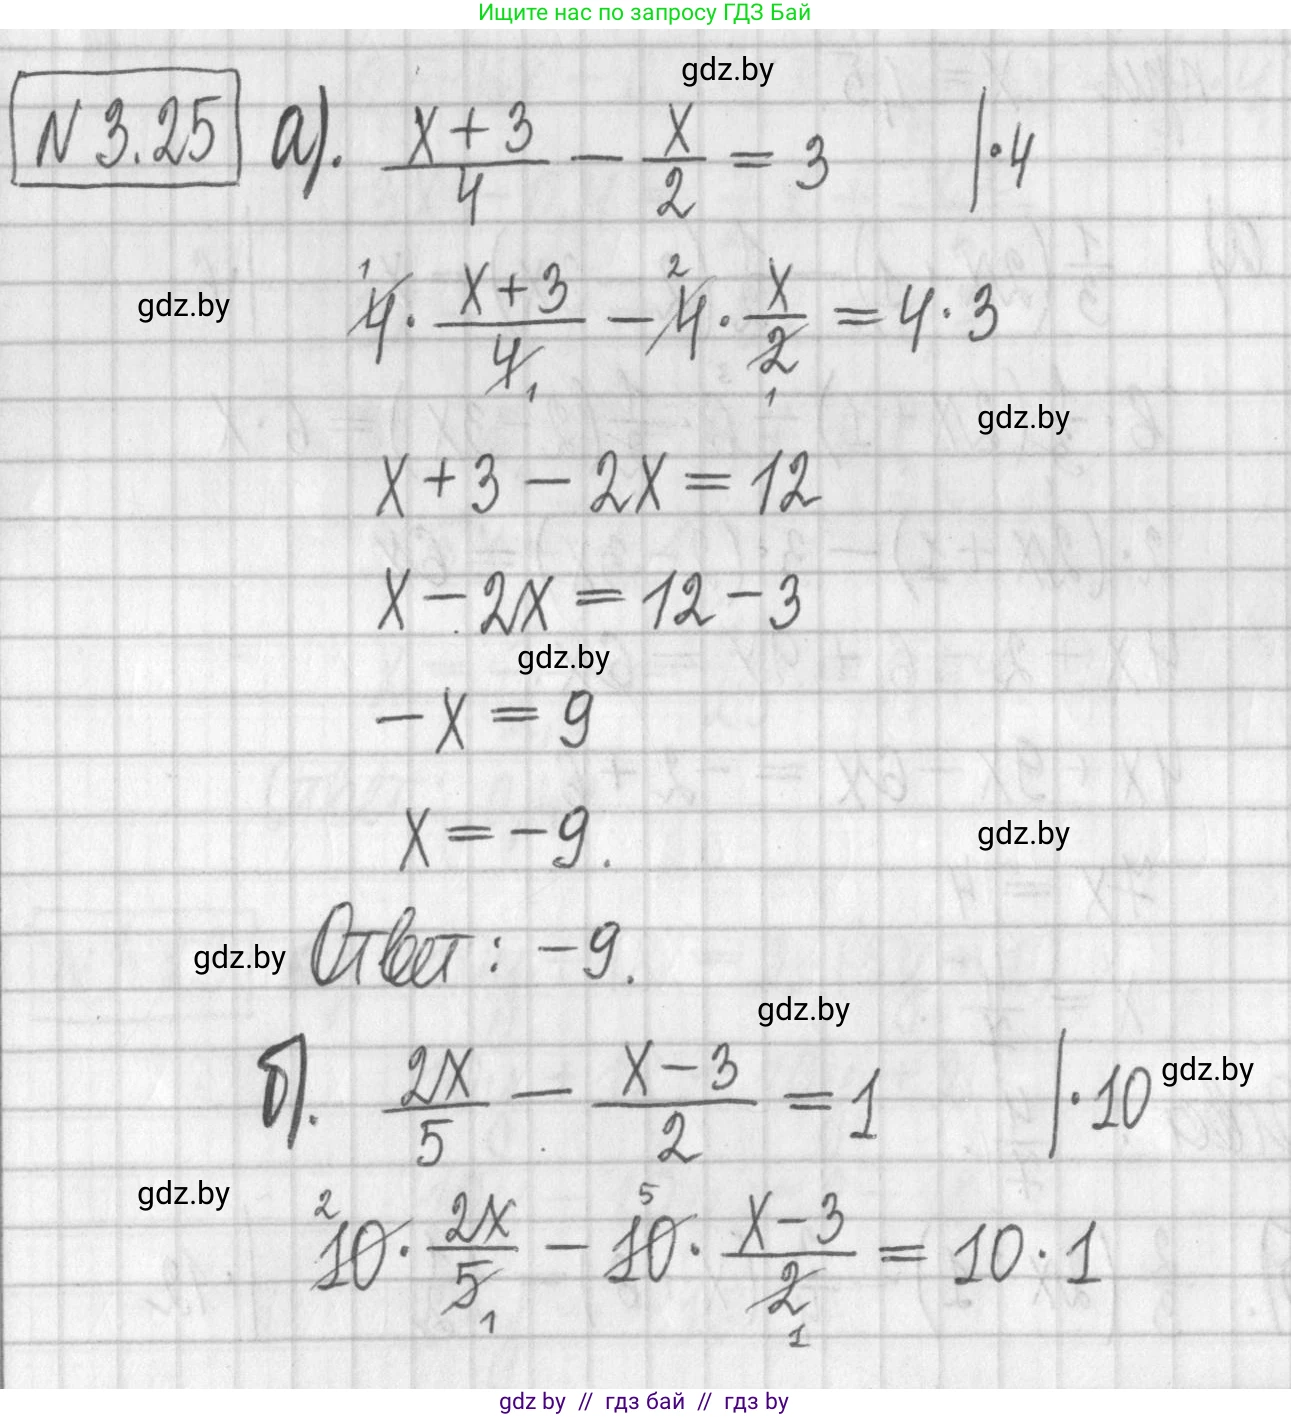 Ищите нас по запросу ГДЗ Бай
gdz.by
№ 3.25 а). (x + 3)/4 − x/2 = 3 | · 4
gdz.by
4 · (x + 3)/4 − 4 · x/2 = 4 · 3
gdz.by
x + 3 − 2x = 12
x − 2x = 12 − 3
gdz.by
−x = 9
x = −9.
gdz.by
gdz.by Ответ: −9.
gdz.by
б). 2x/5 − (x − 3)/2 = 1 | · 10 gdz.by
gdz.by
10 · 2x/5 − 10 · (x − 3)/2 = 10 · 1
gdz by // гдз бай // гдз by